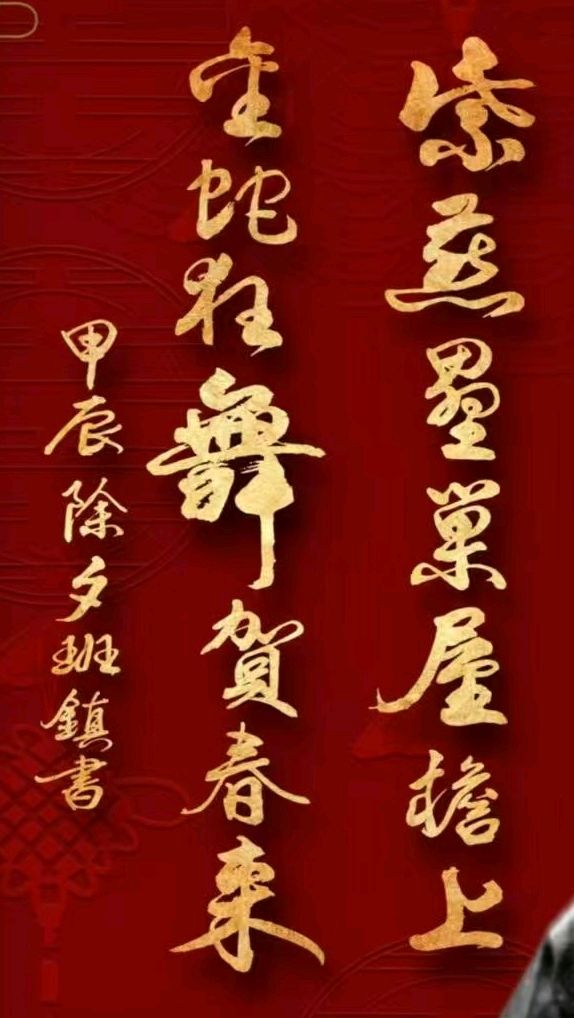 紫燕壘巢屋檐上
金蛇狂舞賀春来
甲辰除夕班鎮書